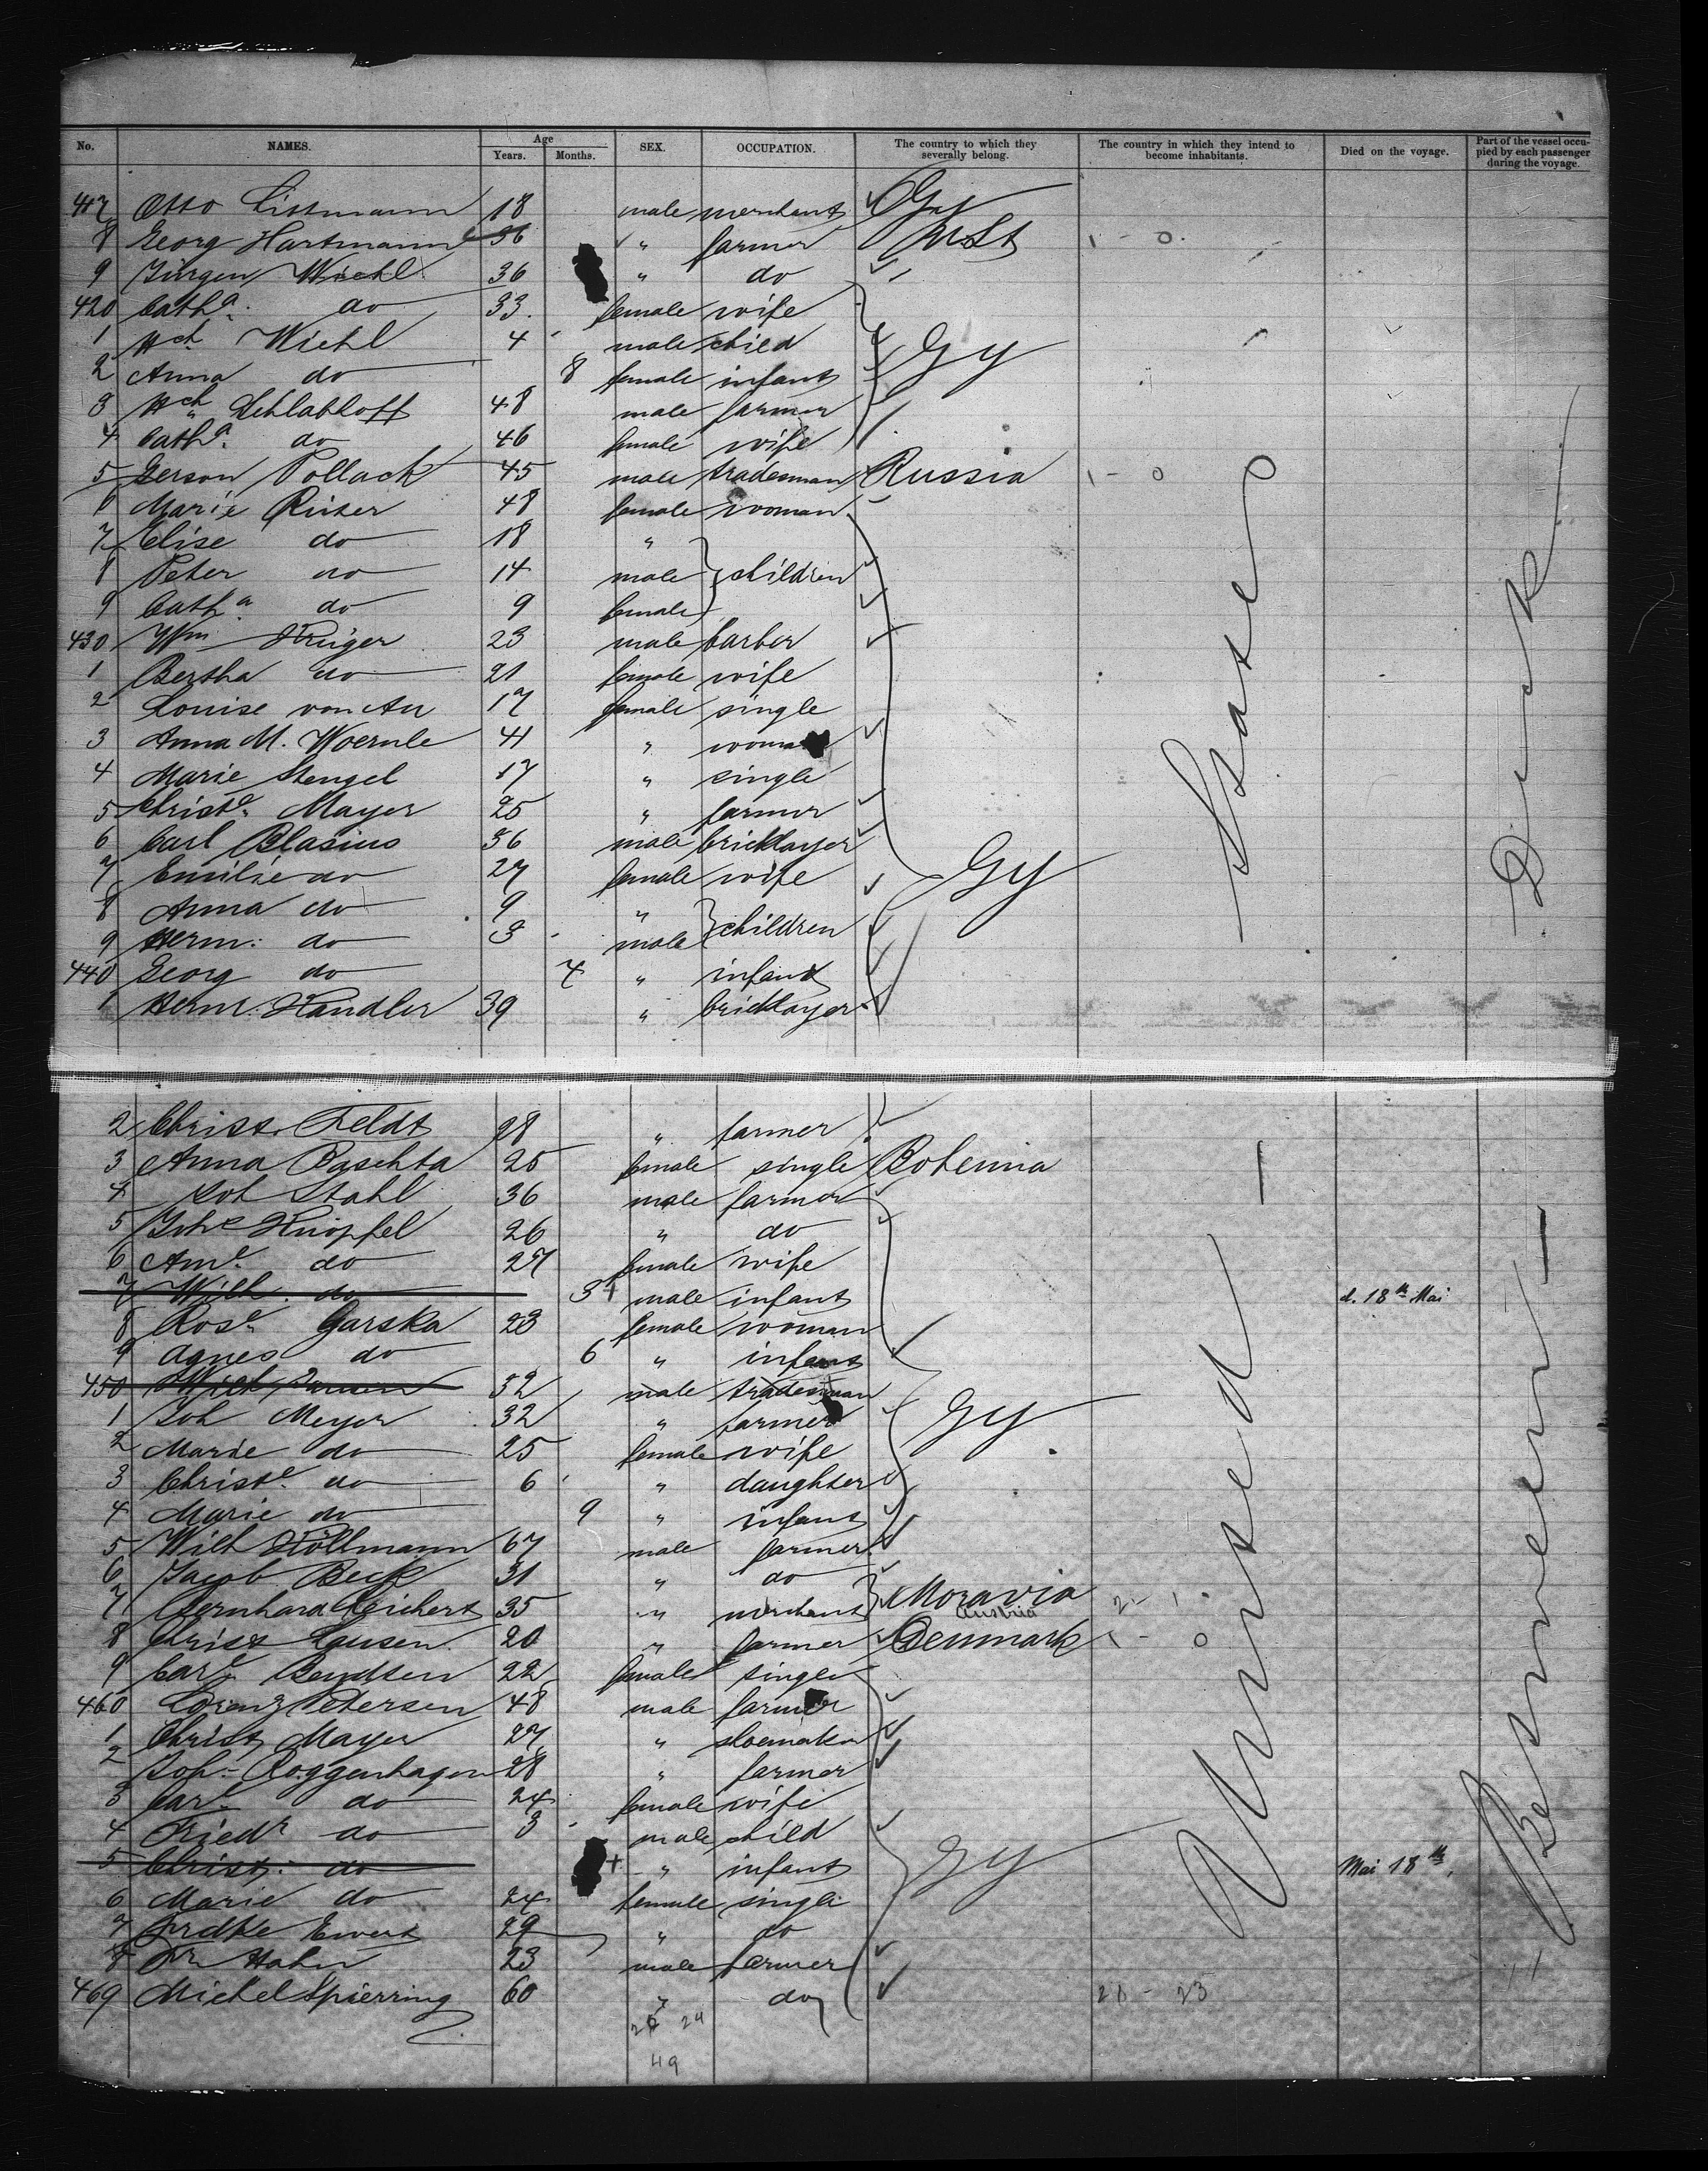 No. NAMES. Age Years. Months. SEX. OCCUPATION. The country to which they severally belong. The country in which they intend to become inhabitants. Died on the voyage. Part of the vessel occupied by each passenger during the voyage.
417 Otto Littmann 18 male merchant Gy
8 Georg Hartmann 36 " farmer U.St 1 - 0
9 Jürgen Wiehl 36 " do
420 Catha. do 33 female wife
1 Hch Wiehl 4 male child Gy
2 Anna do 8 female infant
3 Hch Schlabloff 48 male farmer
4 Catha. do 46 female wife
5 Gerson Pollack 45 male tradesman Russia 1 - 0
6 Marie Rüser 48 female woman
7 Elise do 18 "
8 Peter do 14 male children
9 Catha do 9 female
430 Wm Krüger 23 male barber
1 Bertha do 21 female wife
2 Louise von Au 17 female single
3 Anna M. Woernle 41 " woman
4 Marie Stengel 17 " single
5 Christe. Mayer 25 " farmer
6 Carl Blasius 36 male bricklayer
7 Emilie do 27 female wife Gy
8 Anna do 9 " children
9 Herm: do 3 male
440 Georg do 4 " infant
1 Herm: Kandler 39 " bricklayer
2 Christ. Feldt 28 " farmer
3 Anna Paschta 25 female single Bohemia
4 Joh Stahl 36 male farmer
5 Johs Knöpfel 26 " do
6 Ame. do 27 female wife
7 Wilh. do 3 + male infant d. 18th Mai
8 Rose. Garska 23 female woman
9 Agnes do 6 " infant
450 Wilh. 32 male tradesman
1 Joh Meyer 32 " farmer Gy
2 Marie do 25 female wife
3 Christe. do 6 " daughter
4 Marie do 9 " infant
5 Wilh Höllmann 67 male farmer
6 Jacob Beck 31 " do
7 Bernhard Reichert 35 " merchant Moravia Austria 2 - 1
8 Christ Lausen 20 " farmer Denmark 1 - 0
9 Carl Bendtsen 22 female single
460 Lorenz Petersen 48 male farmer
1 Christ Mayer 27 " shoemaker
2 Joh. Roggenhagen 28 " farmer
3 Carl do 24 female wife
4 Friedr do 3 male child
5 Christ: do + " infant Gy Mai 18th
6 Marie do 24 female single
7 Fredke Ewert 29 " do
8 Fr Hahn 23 male farmer
469 Michel Spierring 60 " do 23
24
49
United States
Between Decks